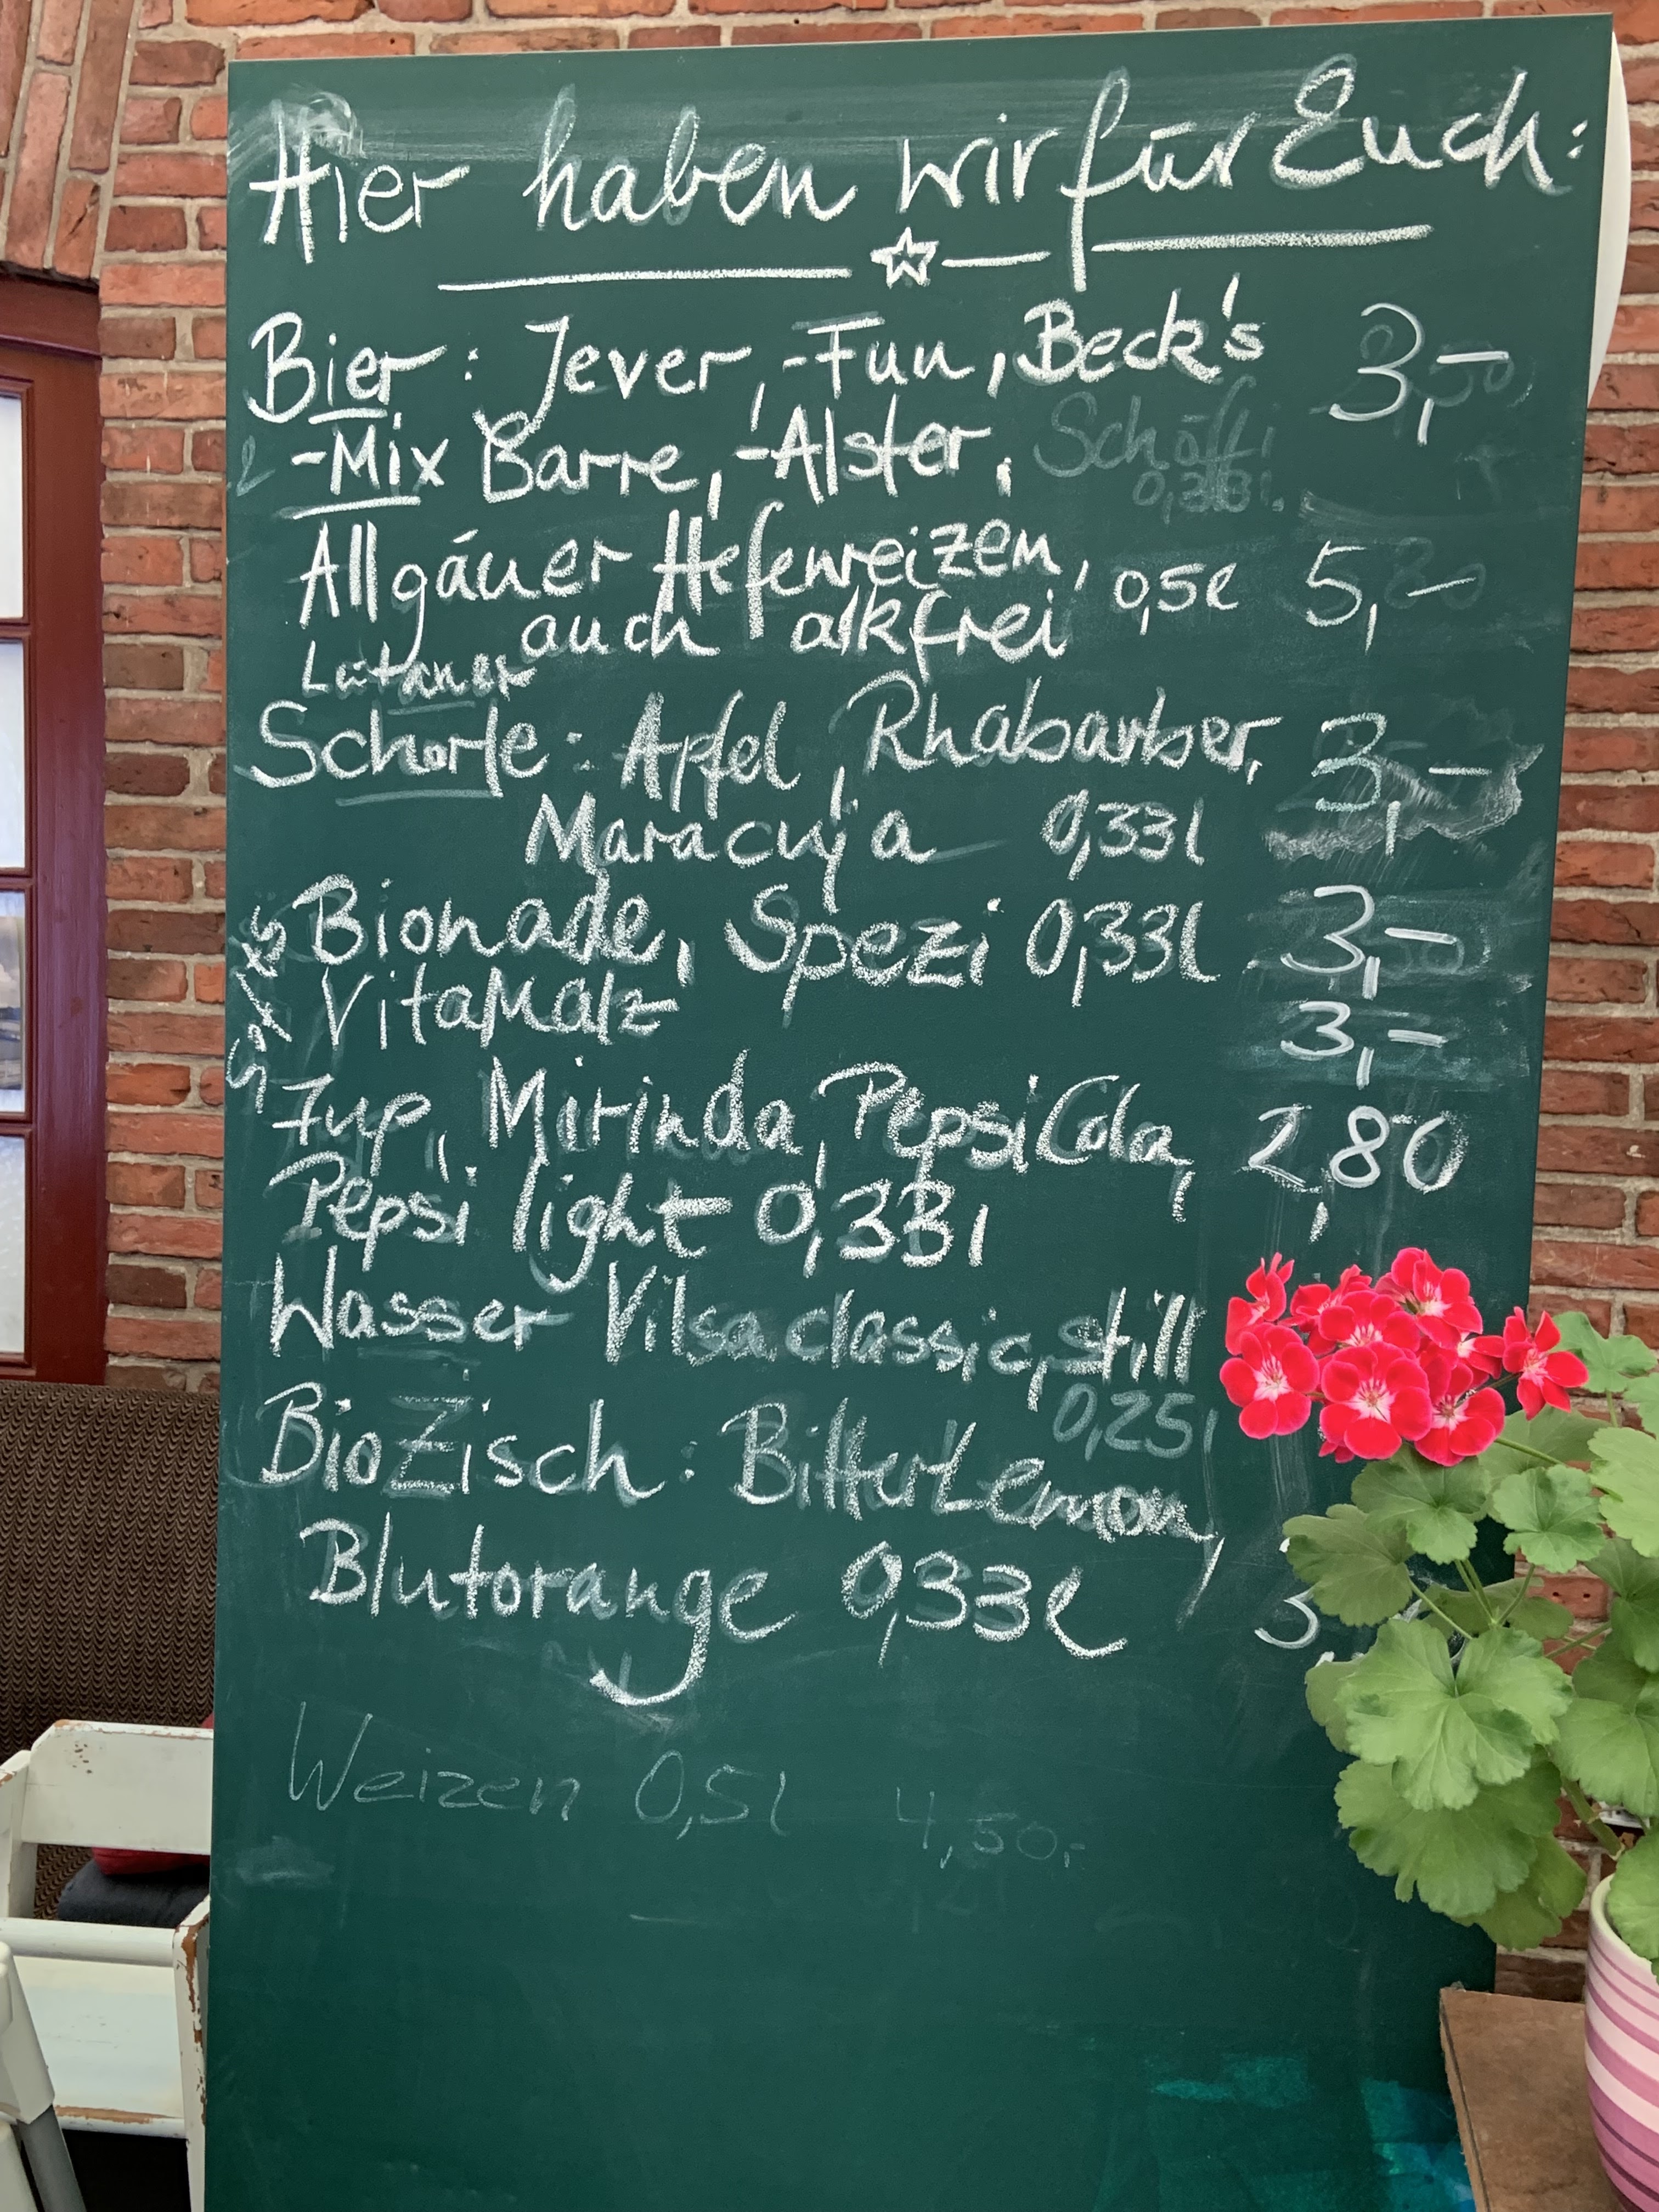 Hier haben wir für Euch:
Bier: Jever, -Fun, Beck's 3,-
-Mix Barre, -Alster,
0,33l.
Allgäuer Hefeweizen, 0,5l 5,-
auch alkfrei
Schorle: Apfel, Rhabarber, 3,-
Maracuja 0,33l
Bionade, Spezi 0,33l 3,-
VitaMalz 3,-
7up, Mirinda, PepsiCola, 2,80
Pepsi light 0,33l
Wasser Vilsa classic, still
0,25l
BioZisch: BitterLemon,
Blutorange 0,33l 3,
Weizen 0,5l 4,50,-